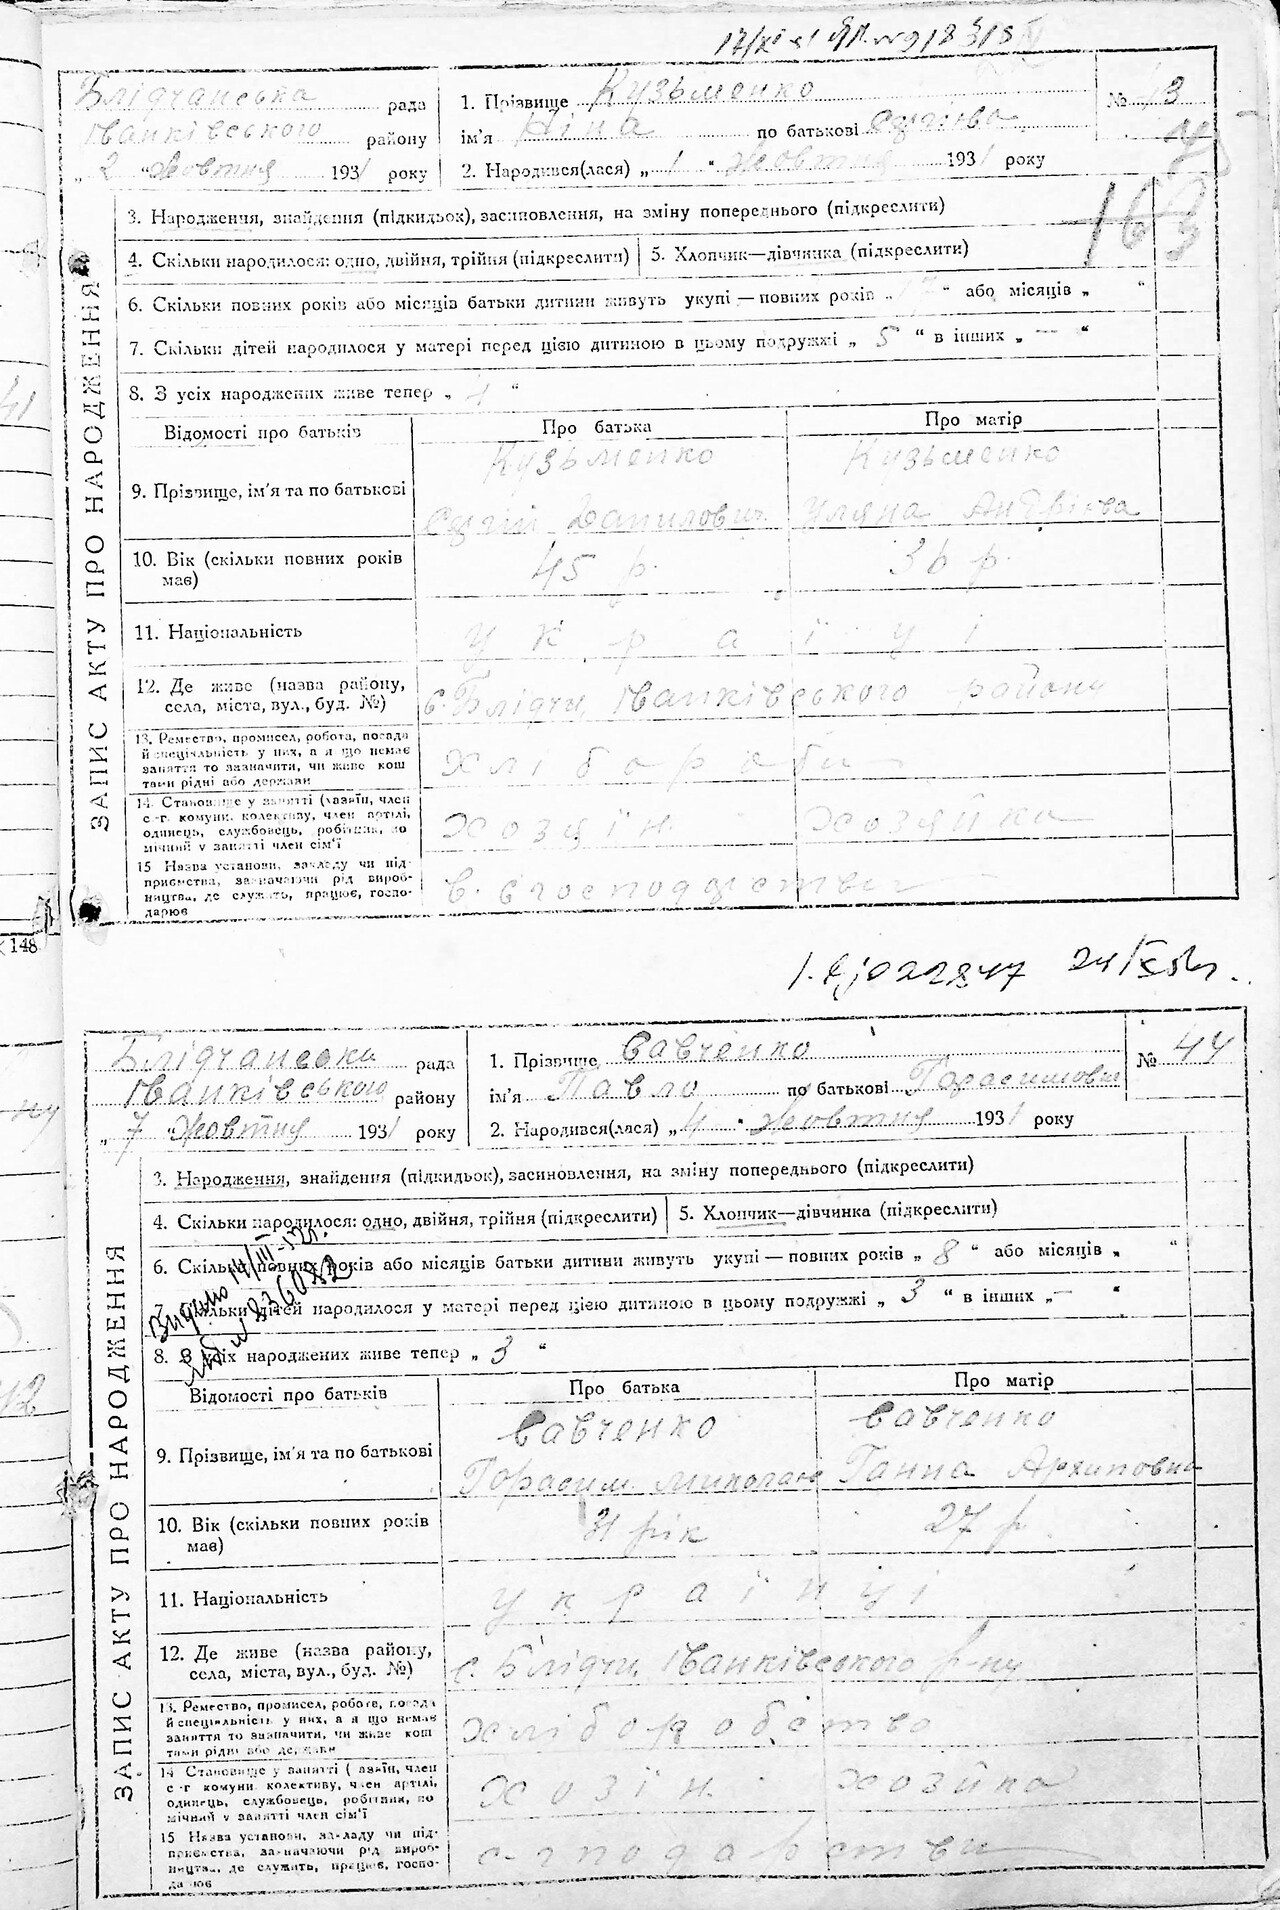 Блідчанська рада
Іванківського району
„ 2 " Жовтня 1931 року
1. Прізвище Кузьменко
ім'я Ніна по батькові
2. Народився(лася) „ 1 " Жовтня 1931 року
№ 43
163
3. Народження, знайдення (підкидьок), засиновлення, на зміну попереднього (підкреслити)
4. Скільки народилося: одно, двійня, трійня (підкреслити)
5. Хлопчик—дівчинка (підкреслити)
6. Скільки повних років або місяців батьки дитини живуть укупі — повних років „ " або місяців „ "
7. Скільки дітей народилося у матері перед цією дитиною в цьому подружжі „ 5 " в інших „ — "
8. З усіх народжених живе тепер „ 4 "
ЗАПИС АКТУ ПРО НАРОДЖЕННЯ
Відомості про батьків
Про батька
Про матір
9. Прізвище, ім'я та по батькові
Кузьменко
Данилович
Кузьменко
Уляна Андріїва
10. Вік (скільки повних років має)
45 р.
36 р.
11. Національність
українці
12. Де живе (назва району,
села, міста, вул., буд. №)
с. Блідчи, Іванківського району
13. Ремество, промисел, робота, посада
й спеціяльність у них, а я що немає
заняття то зазначити, чи живе кош
тами рідні або держави
хлібороби
14. Становище у занятті (хазяїн, член
с-г. комуни, колективу, член артілі,
одинець, службовець, робітник, по
мічний у занятті член сім'ї
хозяїн.
хозяйка
15 Назва установи, закладу чи під-
приємства, зазначаючи рід вироб-
ництва, де служить, працює, госпо-
дарює
148
Блідчанська рада
Іванківського району
„ 7 " Жовтня 1931 року
1. Прізвище Савченко
ім'я Павло по батькові Горасимович
2. Народився(лася) „ 4 " Жовтня 1931 року
№ 44
3. Народження, знайдення (підкидьок), засиновлення, на зміну попереднього (підкреслити)
4. Скільки народилося: одно, двійня, трійня (підкреслити)
5. Хлопчик—дівчинка (підкреслити)
6. Скільки повних років або місяців батьки дитини живуть укупі — повних років „ 8 " або місяців „ "
7. Скільки дітей народилося у матері перед цією дитиною в цьому подружжі „ 3 " в інших „ — "
8. З усіх народжених живе тепер „ 3 "
ЗАПИС АКТУ ПРО НАРОДЖЕННЯ
Відомості про батьків
Про батька
Про матір
9. Прізвище, ім'я та по батькові
Савченко
Горасим Миколаєв
Савченко
Ганна Архиповна
10. Вік (скільки повних років має)
31 рік
27 р.
11. Національність
українці
12. Де живе (назва району,
села, міста, вул., буд. №)
с. Блідчи, Іванківського р-ну
13. Ремество, промисел, робота, посада
й спеціяльність у них, а я що немає
заняття то зазначити, чи живе кош
тами рідні або держави
хліборобство
14 Становище у занятті (хазяїн, член
с-г комуни колективу, член артілі,
одинець, службовець, робітник, по
мічний у занятті член сім'ї
хозїн.
хозйка
15 Назва установи, закладу чи під-
приємства, зазначаючи рід вироб-
ництва, де служить, працює, госпо-
дарює